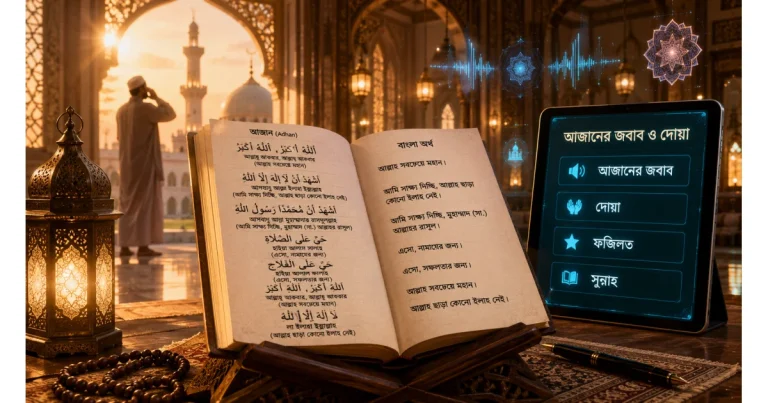 আজান (Adhan)
اللهُ أَكْبَرُ، اللهُ أَكْبَرُ
আল্লাহু আকবার, আল্লাহু আকবার
(আল্লাহ সবচেয়ে মহান)
أَشْهَدُ أَنْ لَا إِلٰهَ إِلَّا اللهُ
ইলাহা ইল্লাল্লাহ
(আমি সাক্ষ্য দিচ্ছি, আল্লাহ ছাড়া কোনো ইলাহ নেই)
أَشْهَدُ أَنَّ مُحَمَّدًا رَسُولُ اللهِ
(আমি সাক্ষ্য দিচ্ছি, মুহাম্মাদ (সা.) আল্লাহর রাসূল)
حَيَّ عَلَى الصَّلَاةِ
(এসো, নামাযের জন্য)
حَيَّ عَلَى الْفَلَاحِ
(এসো, সফলতার জন্য)
اللهُ أَكْبَرُ، اللهُ أَكْبَرُ
আল্লাহু আকবার, আল্লাহু আকবার
(আল্লাহ সবচেয়ে মহান)
لَا إِلٰهَ إِلَّا اللهُ
লা ইলাহা ইল্লাল্লাহ
(আল্লাহ ছাড়া কোনো ইলাহ নেই)
বাংলা অর্থ
আল্লাহ সবচেয়ে মহান।
আমি সাক্ষ্য দিচ্ছি, আল্লাহ ছাড়া
কোনো ইলাহ নেই।
আমি সাক্ষ্য দিচ্ছি, মুহাম্মাদ (সা.)
আল্লাহর রাসূল।
এসো, নামাযের জন্য।
এসো, সফলতার জন্য।
আল্লাহ সবচেয়ে মহান।
আল্লাহ ছাড়া কোনো ইলাহ নেই।
আজানের জবাব ও দোয়া
আজানের জবাব
দোয়া
ফজিলত
সুন্নাহ